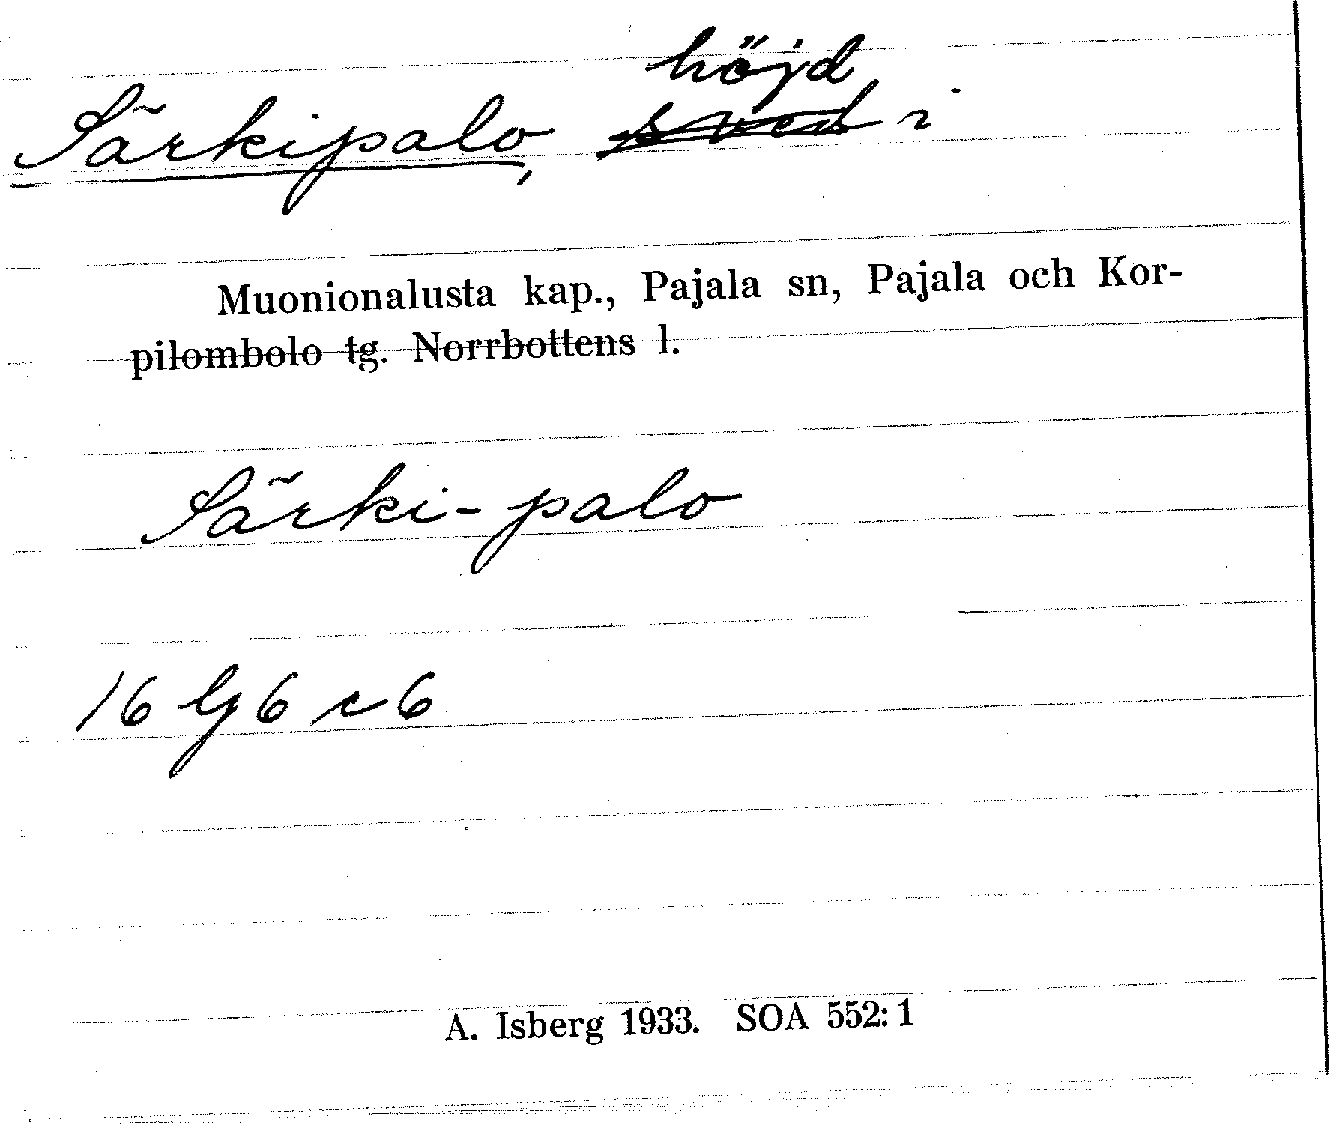 höjd
Särkipalo, sved i
Muonionalusta kap., Pajala sn, Pajala och Kor-
pilombolo tg. Norrbottens l.
Särki-palo
16 G 6 c 6
A. Isberg 1933. SOA 552:1